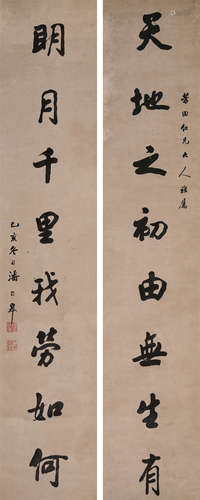 天地之初由無生有
芳田仁兄大人雅屬
明月千里我勞如何
己亥冬日潘仕皋